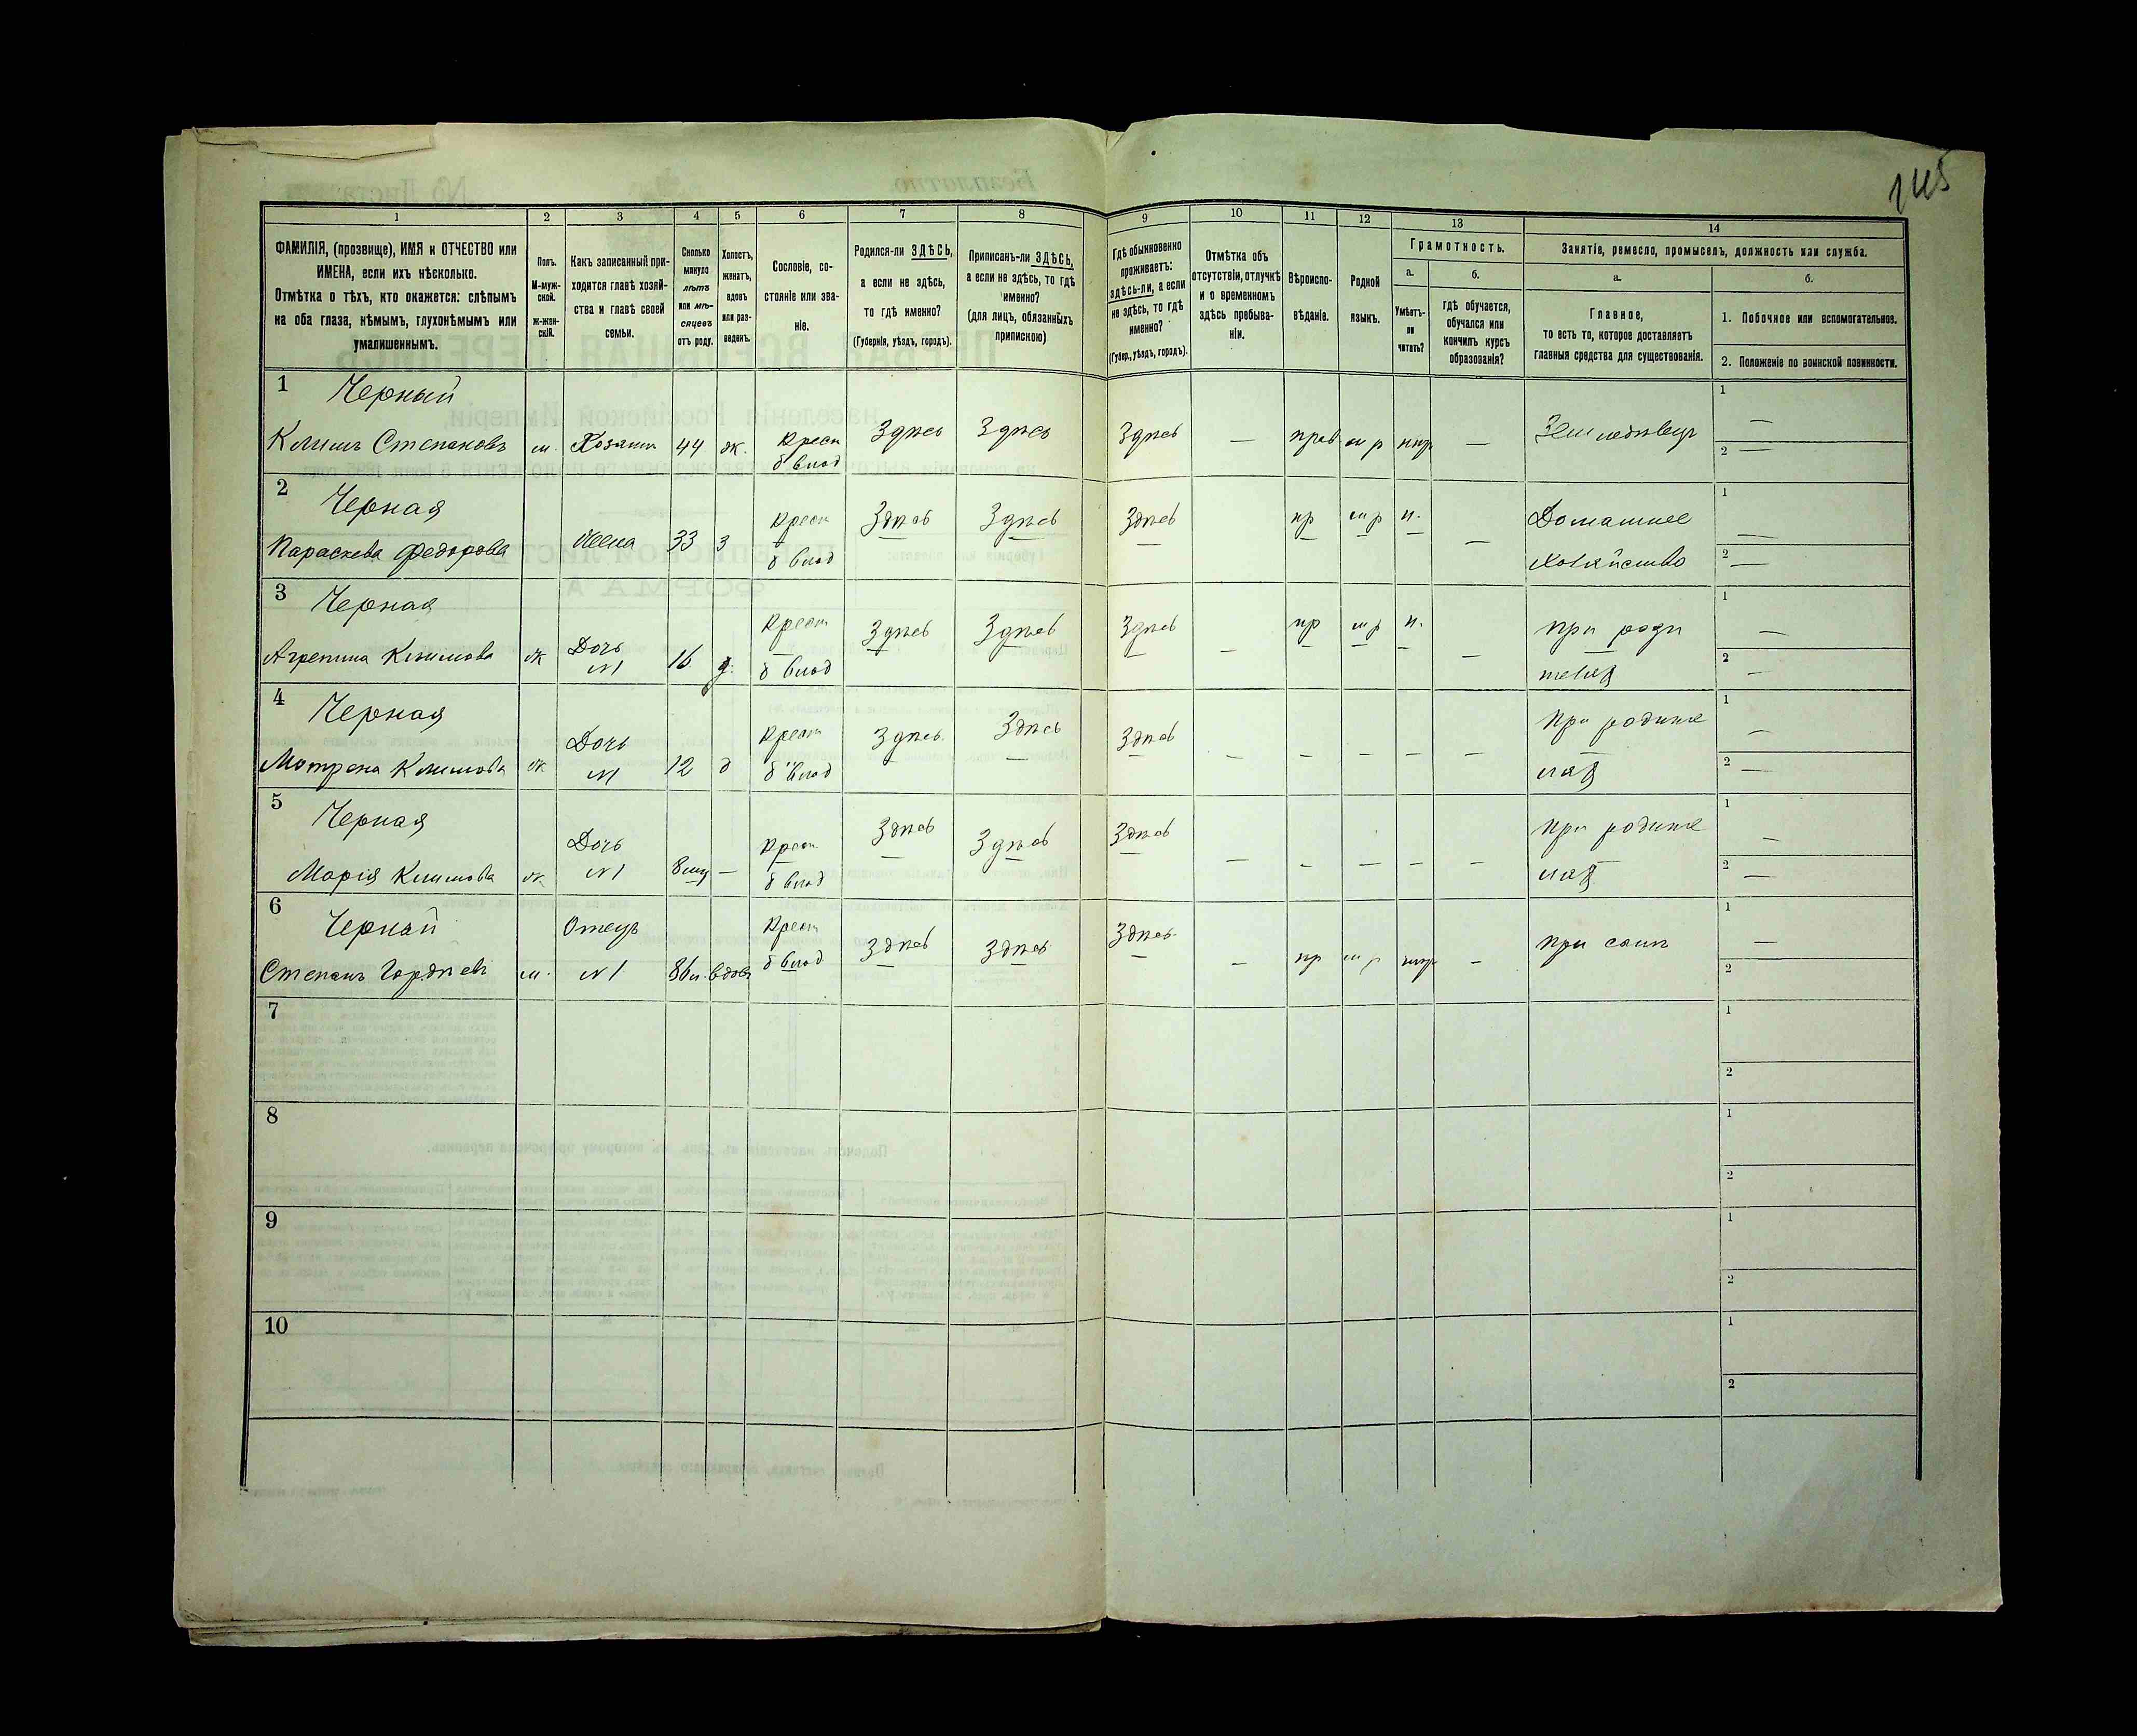 145
1 2 3 4 5 6 7 8 9 10 11 12 13 14
ФАМИЛІЯ, (прозвище), ИМЯ и ОТЧЕСТВО или
ИМЕНА, если ихъ нѣсколько.
Отмѣтка о тѣхъ, кто окажется: слѣпымъ
на оба глаза, нѣмымъ, глухонѣмымъ или
умалишеннымъ.
Полъ.
М-муж-
ской.
ж-жен-
скій.
Какъ записанный при-
ходится главѣ хозяй-
ства и главѣ своей
семьи.
Сколько
минуло
лѣтъ
или мѣ-
сяцевъ
отъ роду.
Холостъ,
женатъ,
вдовъ
или раз-
веденъ.
Сословіе, со-
стояніе или зва-
ніе.
Родился-ли ЗДѢСЬ,
а если не здѣсь,
то гдѣ именно?
(Губернія, уѣздъ, городъ).
Приписанъ-ли ЗДѢСЬ,
а если не здѣсь, то гдѣ
именно?
(для лицъ, обязанныхъ
припискою)
Гдѣ обыкновенно
проживаетъ:
здѣсь-ли, а если
не здѣсь, то гдѣ
именно?
(Губер., уѣздъ, городъ).
Отмѣтка объ
отсутствіи, отлучкѣ
и о временномъ
здѣсь пребыва-
ніи.
Вѣроиспо-
вѣданіе.
Родной
языкъ.
Грамотность.
а.
Умѣетъ-
ли
читать?
б.
Гдѣ обучается,
обучался или
кончилъ курсъ
образованія?
Занятіе, ремесло, промыселъ, должность или служба.
а.
Главное,
то есть то, которое доставляетъ
главныя средства для существованія.
б.
1. Побочное или вспомогательное.
2. Положеніе по воинской повинности.
1 Черный
Климъ Степановъ м. Хозяин 44 ж. Крест б влад Здѣсь Здѣсь Здѣсь — прав мр нпр — Землебѣлецъ 1 — 2 —
2 Черная
Параскева Федорова Жена 33 з Крест б влад Здѣсь Здѣсь Здѣсь пр мр н. — Домашнее
Хозяйство 1 — 2 —
3 Черная
Агрепина Климова ж Дочь №1 16 д. Крест б влад Здѣсь Здѣсь Здѣсь — пр мр н. — при роди
телях 1 — 2 —
4 Черная
Мотрона Климова ж Дочь №1 12 д Крест б влад Здѣсь Здѣсь Здѣсь — — — — — при родите
лях 1 — 2 —
5 Черная
Марія Климова ж Дочь №1 8 мц — Крест б влад Здѣсь Здѣсь Здѣсь — — — — — при родите
лях 1 — 2 —
6 Черный
Степанъ Гордѣевъ м. Отецъ №1 86 л. вдовъ Крест б влад Здѣсь Здѣсь Здѣсь — пр мр нпр — при сынѣ 1 — 2
7 1 2
8 1 2
9 1 2
10 1 2